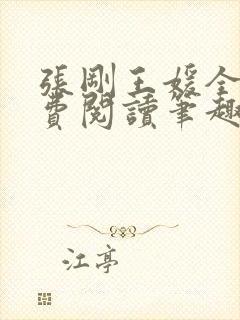 張剛王媛全
費閱讀筆趣
江亭